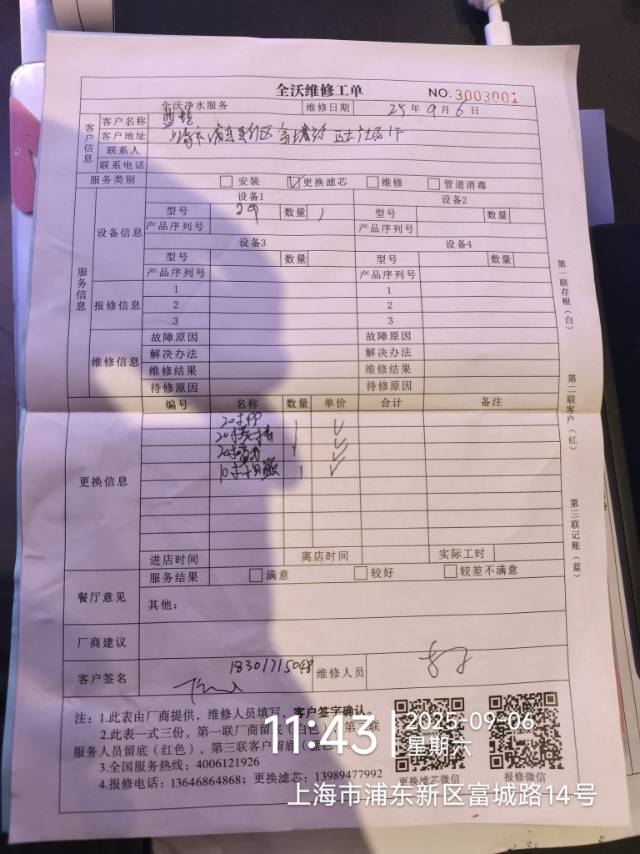 全沃维修工单
NO. 3003001
全沃净水服务 维修日期 25年9月6日
客户信息
客户名称
客户地址 上海市浦东新区富城路正大广场1F
联系人
联系电话
服务类别 安装 更换滤芯 维修 管道消毒
服务信息
设备信息
设备1 设备2
型号 数量 1 型号 数量
产品序列号 产品序列号
设备3 设备4
型号 数量 型号 数量
产品序列号 产品序列号
报修信息
1 1
2 2
3 3
维修信息
故障原因 故障原因
解决办法 解决办法
维修结果 维修结果
待修原因 待修原因
更换信息
编号 名称 数量 单价 合计 备注
20寸PP 1
20寸 1
20寸 1
10寸 1
进店时间 离店时间 实际工时
餐厅意见
服务结果 满意 较好 较差不满意
其他:
厂商建议
客户签名 18301715048 维修人员
第一联存根(白)
第二联客户(红)
第三联记账(蓝)
注:1.此表由厂商提供,维修人员填写,客户签字确认。
2.此表一式三份,第一联厂商留底(白色),第二联
服务人员留底(红色),第三联客户留底
3.全国服务热线:4006121926
4.报修电话:13646864868;更换滤芯:13989477992
更换滤芯微信 报修微信
11:43 2025-09-06
星期六
上海市浦东新区富城路14号